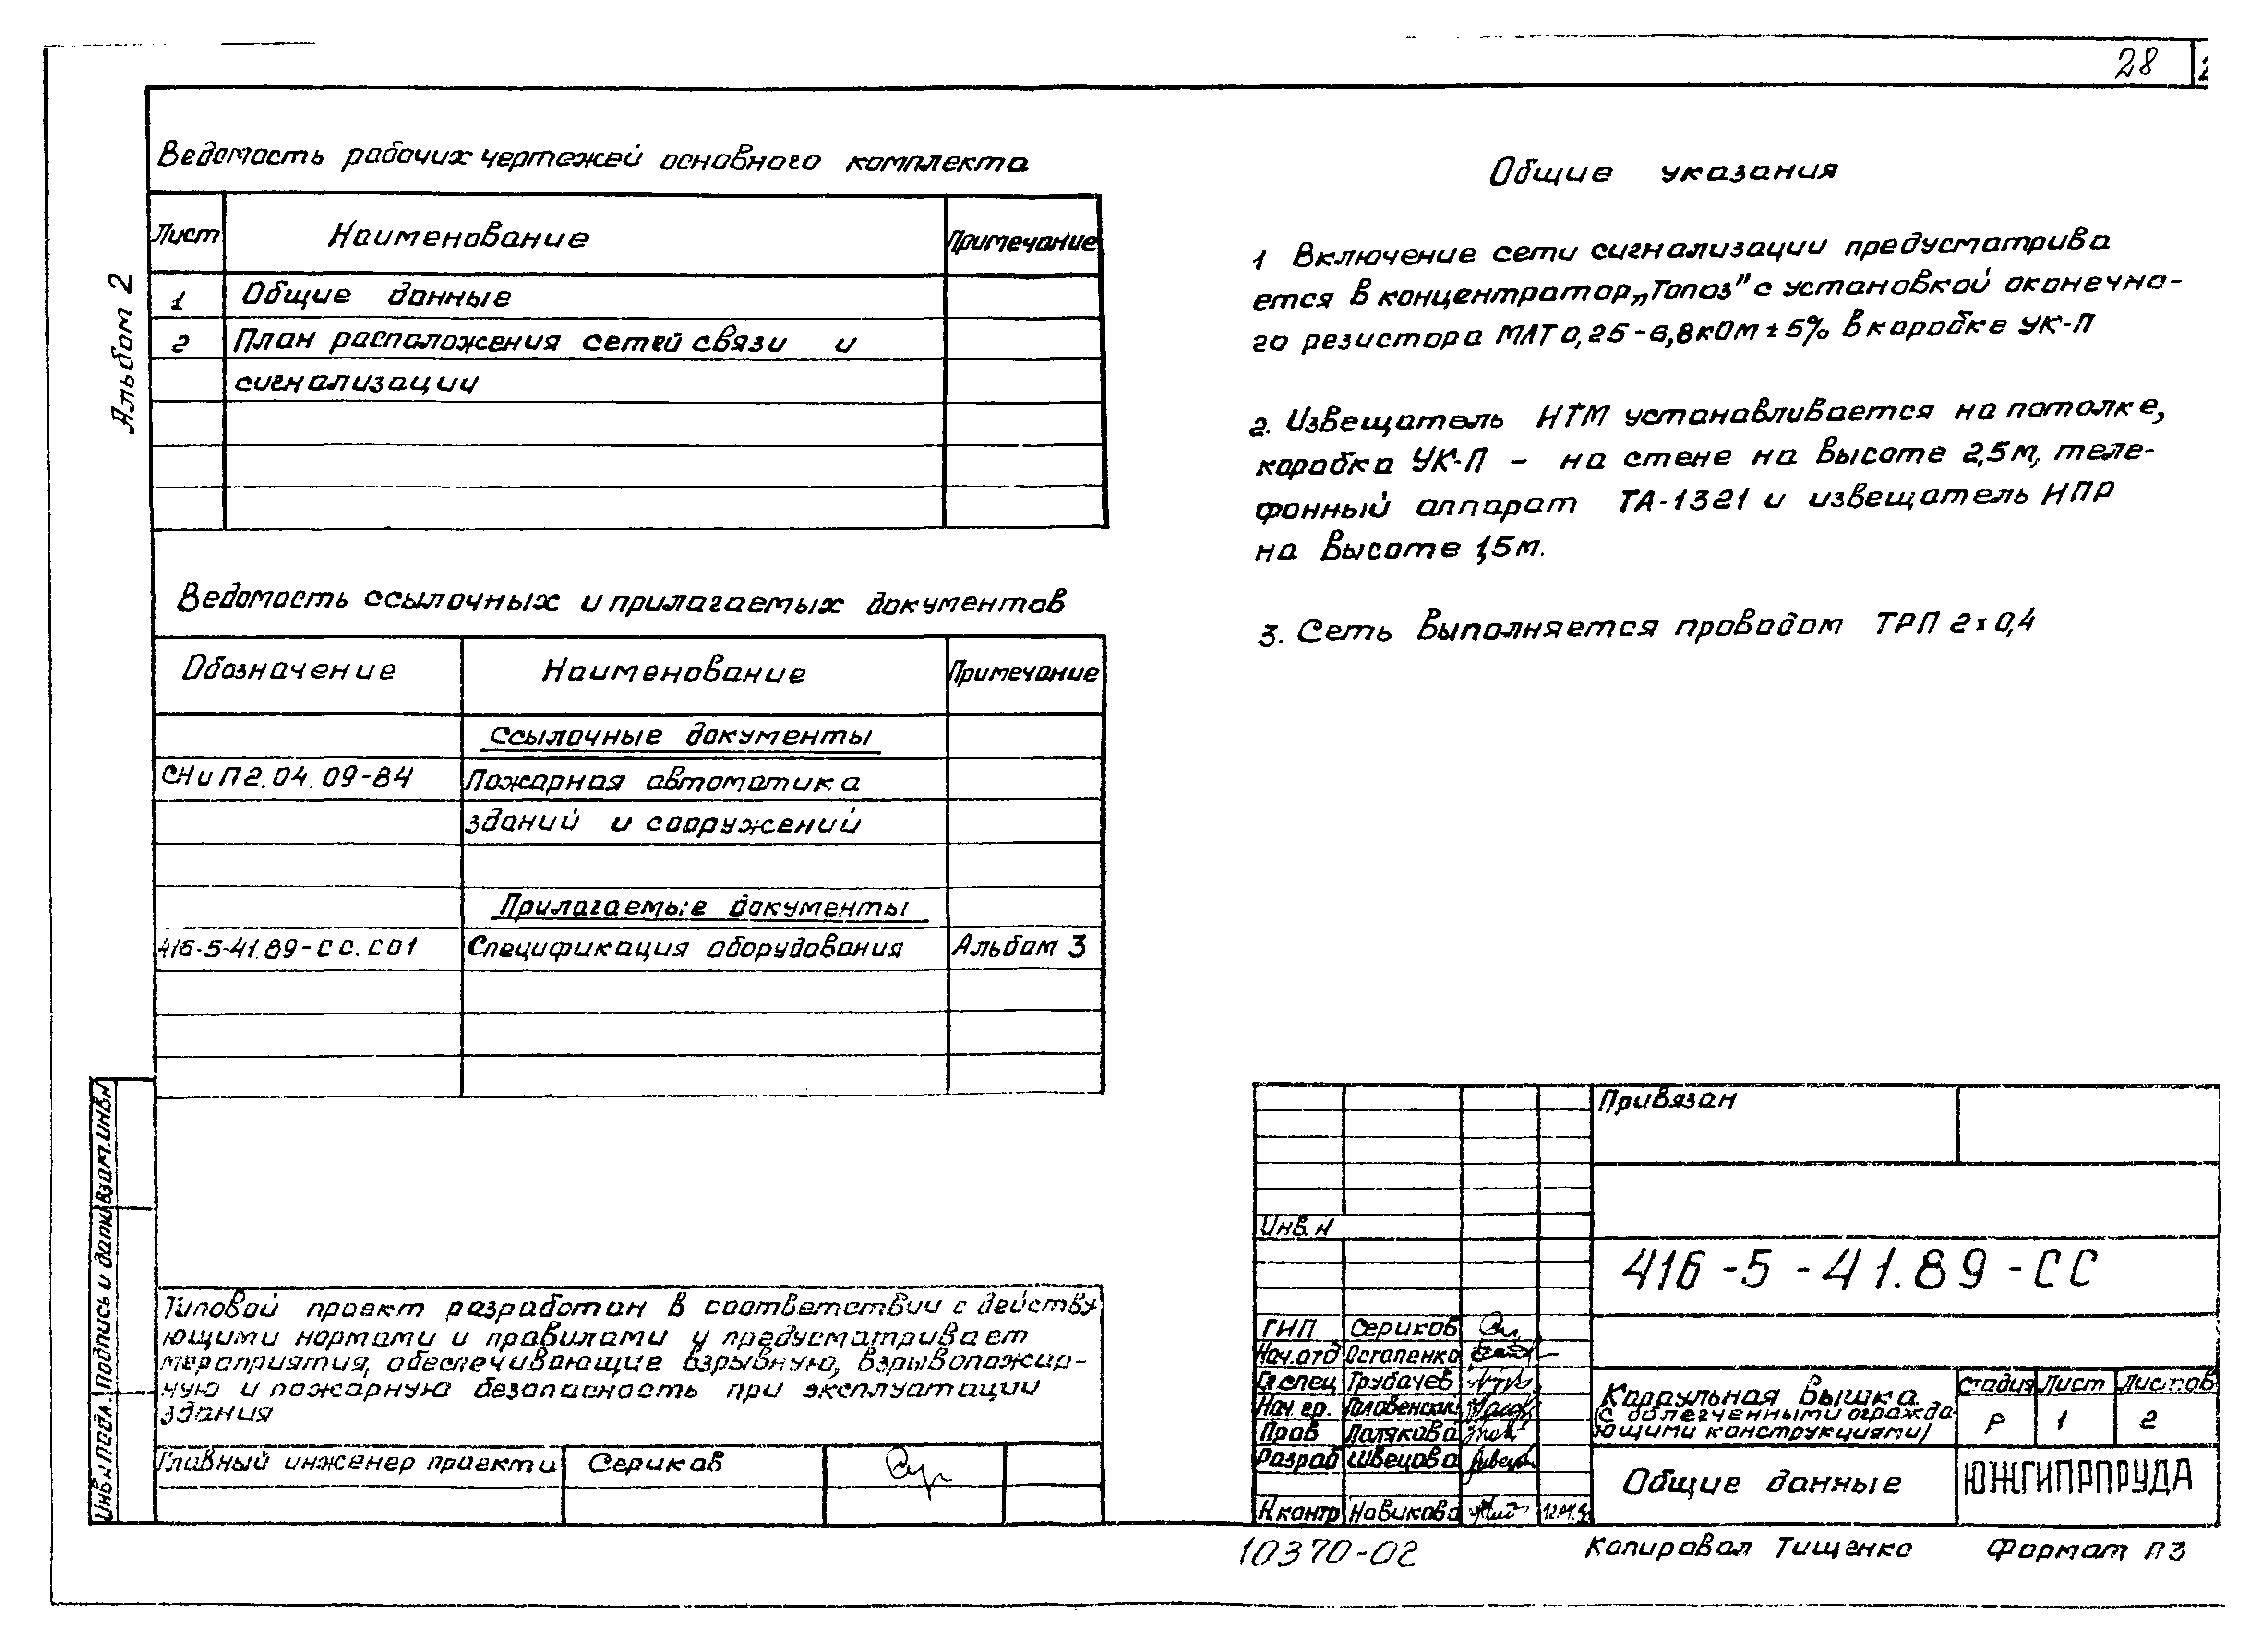 28
Альбом 2
Ведомость рабочих чертежей основного комплекта
Лист Наименование Примечание
1 Общие данные
2 План расположения сетей связи и
сигнализации
Ведомость ссылочных и прилагаемых документов
Обозначение Наименование Примечание
Ссылочные документы
СНиП 2.04.09-84 Пожарная автоматика
зданий и сооружений
Прилагаемые документы
416-5-41.89-СС.СО1 Спецификация оборудования Альбом 3
Общие указания
1 Включение сети сигнализации предусматрива
ется в концентратор „Топаз" с установкой оконечно-
го резистора МЛТ 0,25-6,8кОм±5% в коробке УК-П
2. Извещатель НТМ устанавливается на потолке,
коробка УК-П - на стене на высоте 2,5м, теле-
фонный аппарат ТА-1321 и извещатель НПР
на высоте 1,5м.
3. Сеть выполняется проводом ТРП 2х0,4
Типовой проект разработан в соответствии с действу
ющими нормами и правилами и предусматривает
мероприятия, обеспечивающие взрывную, взрывопожар-
ную и пожарную безопасность при эксплуатации
здания
Главный инженер проекти Сериков
Инв.N подл. Подпись и дата Взам.инв.N
Привязан
Инв.N
416-5-41.89-СС
ГИП Сериков
Нач.отд Остапенко
Гл.спец Трубачев
Нач.гр.
Пров Полякова
Разраб Швецова
Н.контр Новикова
Караульная вышка
(с облегченными огражда
ющими конструкциями)
Стадия Лист Листов
Р 1 2
Общие данные
ЮЖГИПРПРУДА
10370-02
Копировал Тищенко Формат А3